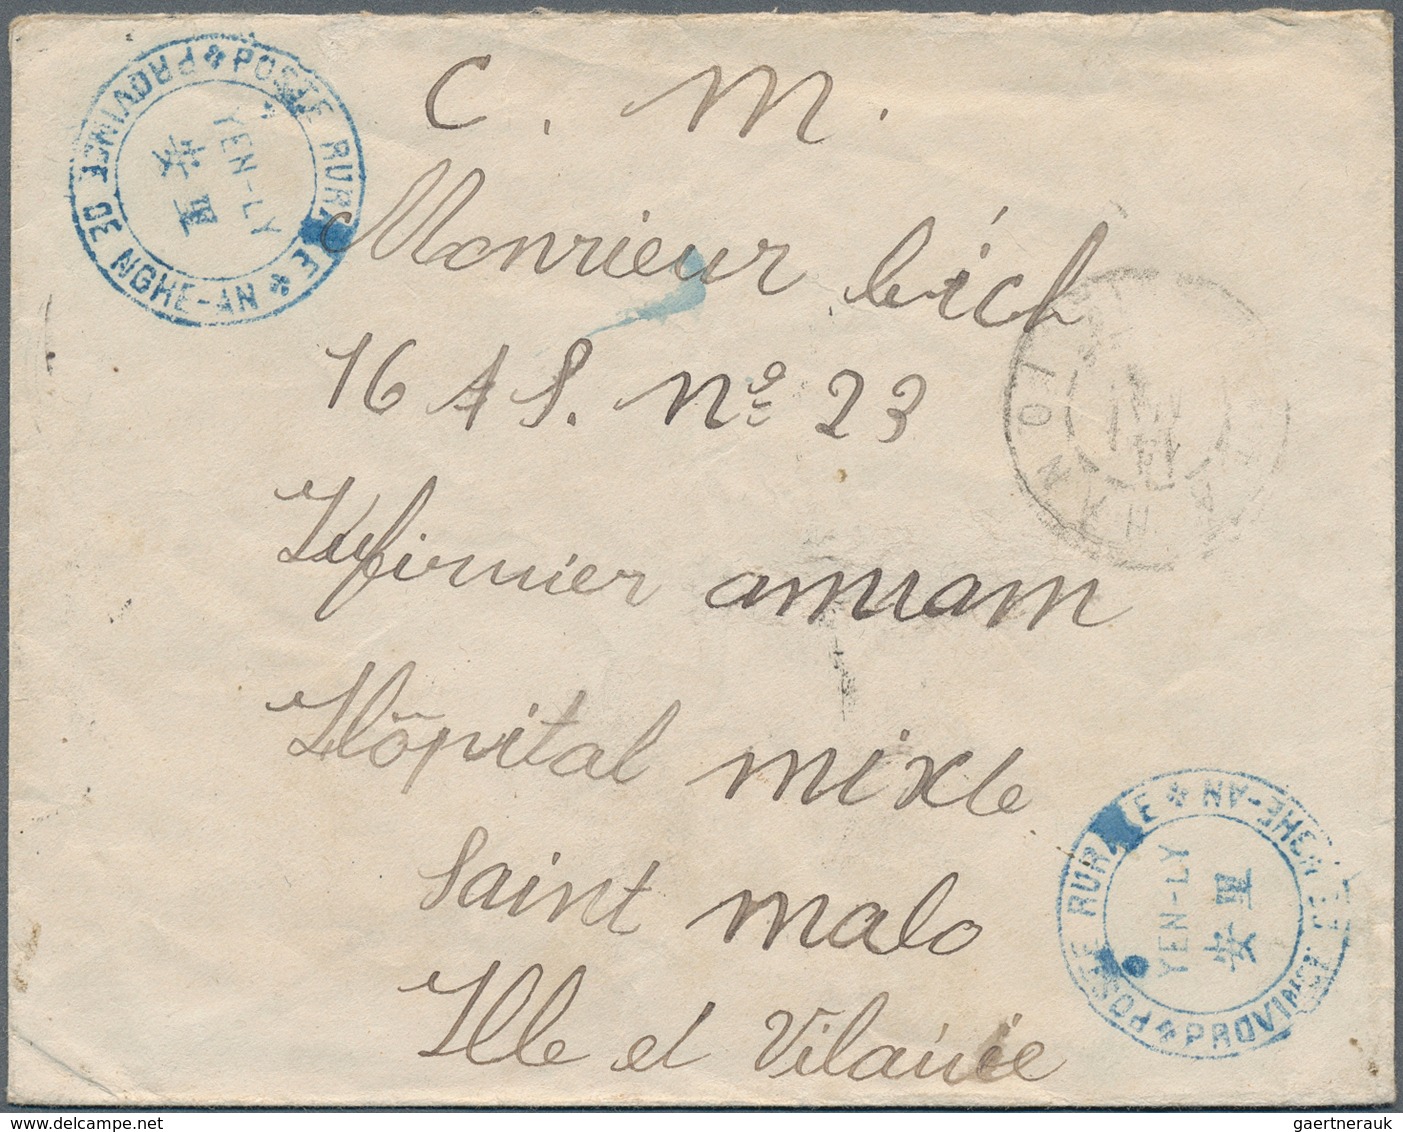 POSTE RURALE * PROVINCE DE NGHE-AN *
YEN-LY
安里
C. M.
Monsieur bích
16 A S. Nº 23
Infirmier annam
Hôpital mixte
Saint malo
Ille et Vilainie
HANOI
POSTE RURALE * PROVINCE DE NGHE-AN *
YEN-LY
安里
gaertnerauk